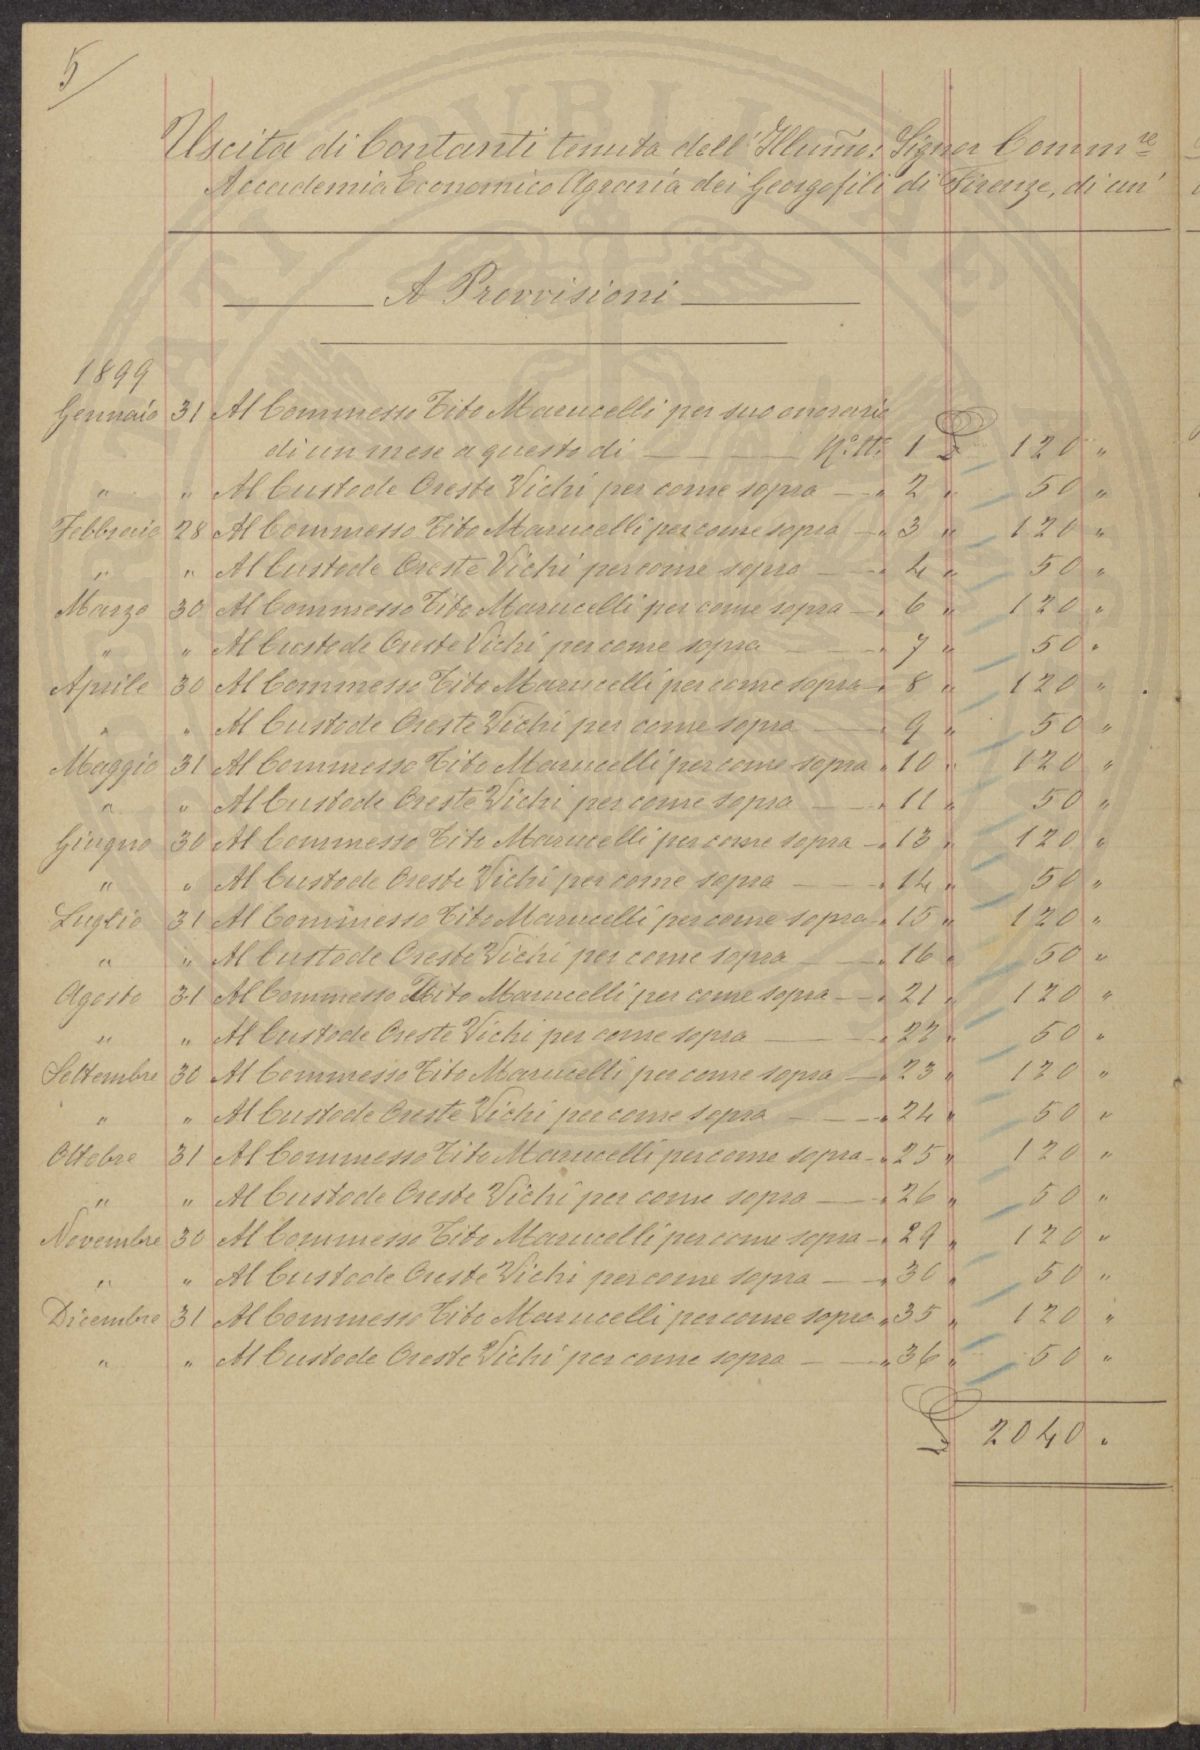 5
Uscita di Contanti tenuta dell' Illumo: Signor Commre
Accademia Economico Agraria dei Georgofili di Firenze, di un'
A Provvisioni
1899
Gennaio 31 Al Commesso Tito Marucelli per suo onorario
di un mese a questo dì — No. tto. 1 £ 120 "
" " Al Custode Oreste Vichi per come sopra — " 2 " 50 "
Febbraio 28 Al Commesso Tito Marucelli per come sopra — " 3 " 120 "
" " Al Custode Oreste Vichi per come sopra — " 4 " 50 "
Marzo 30 Al Commesso Tito Marucelli per come sopra — " 6 " 120 "
" " Al Custode Oreste Vichi per come sopra — " 7 " 50 "
Aprile 30 Al Commesso Tito Marucelli per come sopra — " 8 " 120 "
" " Al Custode Oreste Vichi per come sopra — " 9 " 50 "
Maggio 31 Al Commesso Tito Marucelli per come sopra " 10 " 120 "
" " Al Custode Oreste Vichi per come sopra — " 11 " 50 "
Giugno 30 Al Commesso Tito Marucelli per come sopra — " 13 " 120 "
" " Al Custode Oreste Vichi per come sopra — " 14 " 50 "
Luglio 31 Al Commesso Tito Marucelli per come sopra — " 15 " 120 "
" " Al Custode Oreste Vichi per come sopra — " 16 " 50 "
Agosto 31 Al Commesso Tito Marucelli per come sopra — " 21 " 120 "
" " Al Custode Oreste Vichi per come sopra — " 22 " 50 "
Settembre 30 Al Commesso Tito Marucelli per come sopra — " 23 " 120 "
" " Al Custode Oreste Vichi per come sopra — " 24 " 50 "
Ottobre 31 Al Commesso Tito Marucelli per come sopra — " 25 " 120 "
" " Al Custode Oreste Vichi per come sopra — " 26 " 50 "
Novembre 30 Al Commesso Tito Marucelli per come sopra — " 29 " 120 "
" " Al Custode Oreste Vichi per come sopra — " 30 " 50 "
Dicembre 31 Al Commesso Tito Marucelli per come sopra " 35 " 120 "
" " Al Custode Oreste Vichi per come sopra — " 36 " 50 "
£ 2040 "